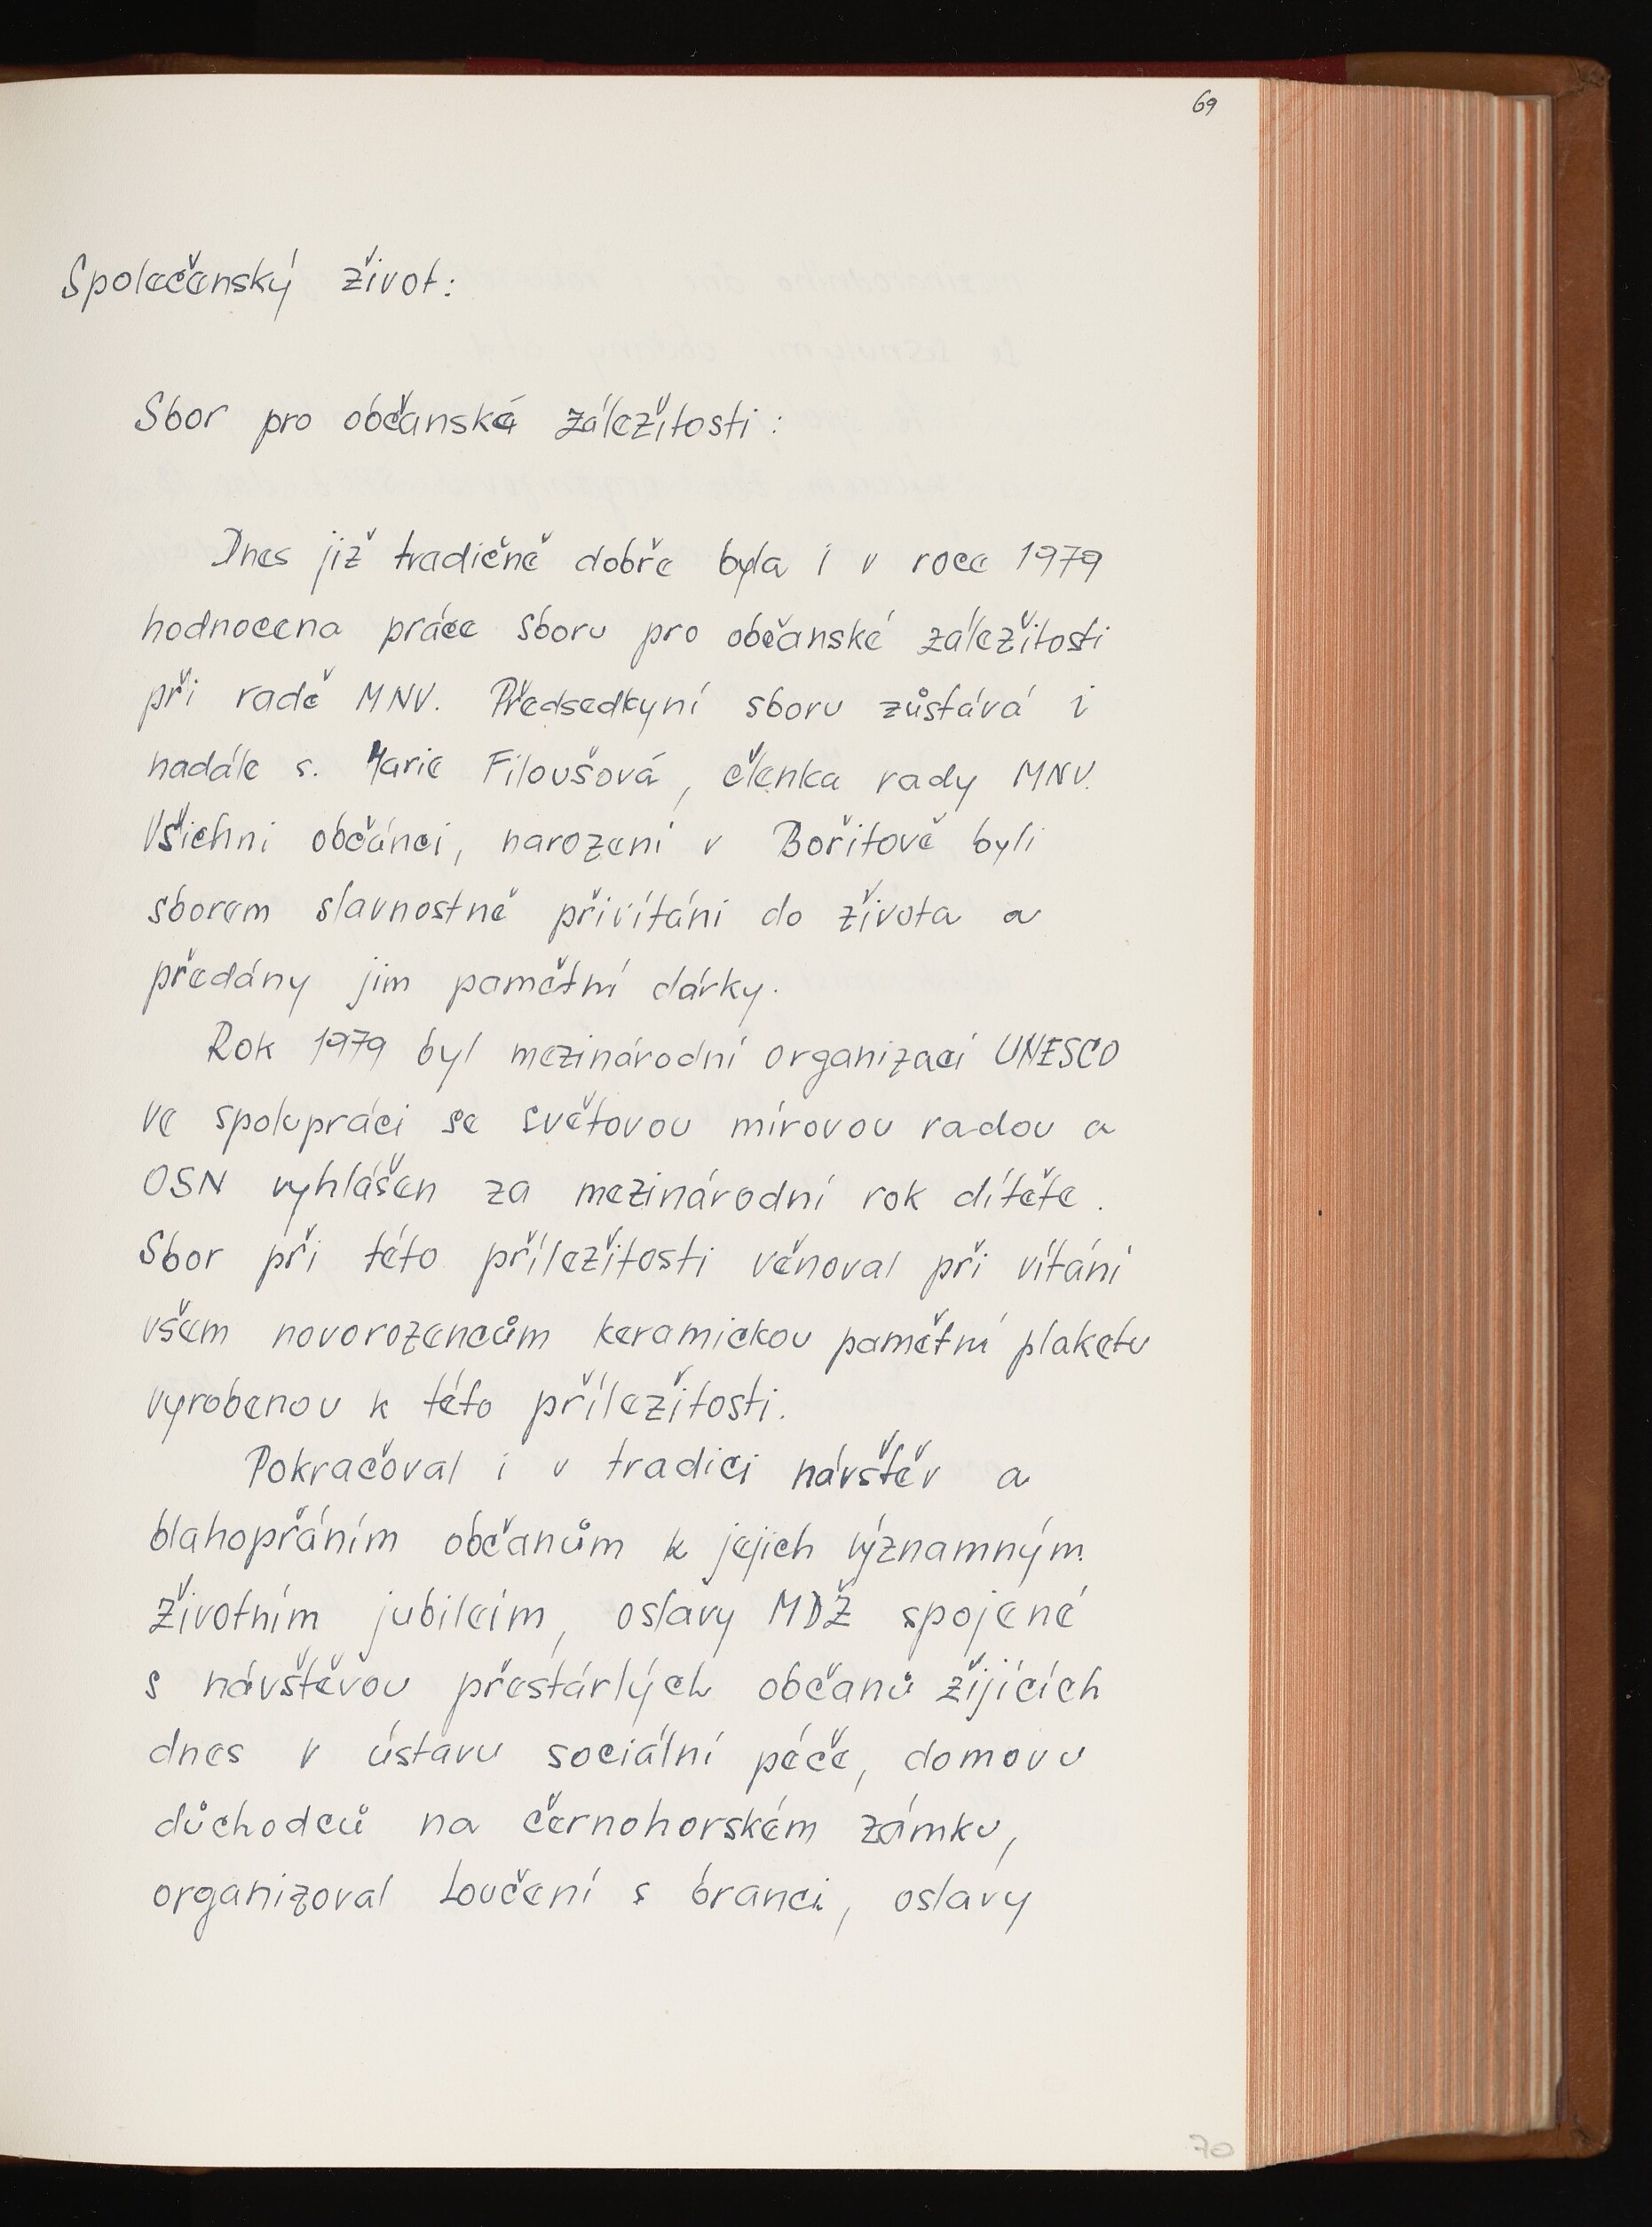 69
Společenský život:
Sbor pro občanské záležitosti:
Dnes již tradičně dobře byla i v roce 1979
hodnocena práce sboru pro občanské záležitosti
při radě MNV. Předsedkyní sboru zůstává i
nadále s. Marie Filoušová, členka rady MNV.
Všichni občánci, narození v Bořitově byli
sborem slavnostně přivítáni do života a
předány jim pamětní dárky.
Rok 1979 byl mezinárodní organizací UNESCO
ve spolupráci se světovou mírovou radou a
OSN vyhlášen za mezinárodní rok dítěte.
Sbor při této příležitosti věnoval při vítání
všem novorozencům keramickou pamětní plaketu
vyrobenou k této příležitosti.
Pokračoval i v tradici návštěv a
blahopřáním občanům k jejich významným
životním jubileím, oslavy MDŽ spojené
s návštěvou přestárlých občanů žijících
dnes v ústavu sociální péče, domovu
důchodců na černohorském zámku,
organizoval Loučení s branci, oslavy
70